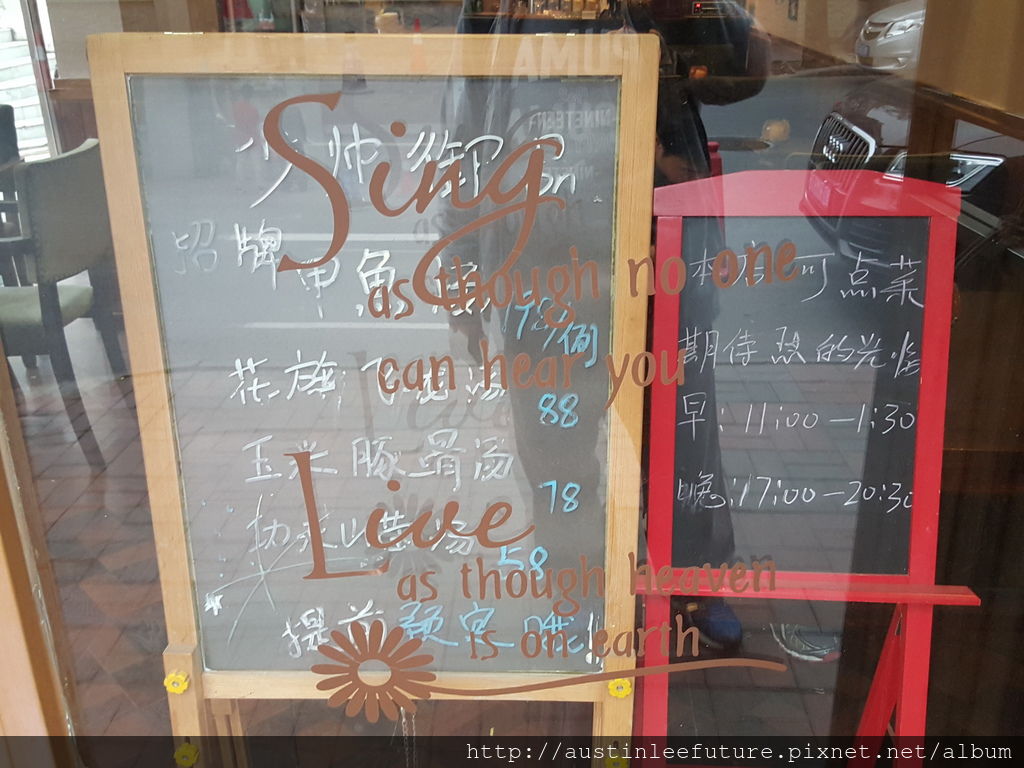 Sing
as though no one
can hear you
Live
as though heaven
is on earth
小帅
招牌甲鱼
198/例
花旗
88
玉米豚骨汤
78
汤
58
提前预定哦!!
可点菜
期待您的光临
早:11:00—1:30
晚:17:00—20:30
http://austinleefuture.pixnet.net/album